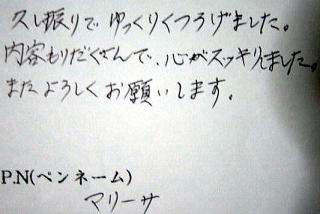 久し振りで ゆっくりくつろげました。
内容もりだくさんで、心がスッキリしました。
またよろしくお願いします。
P.N(ペンネーム)
マリーサ